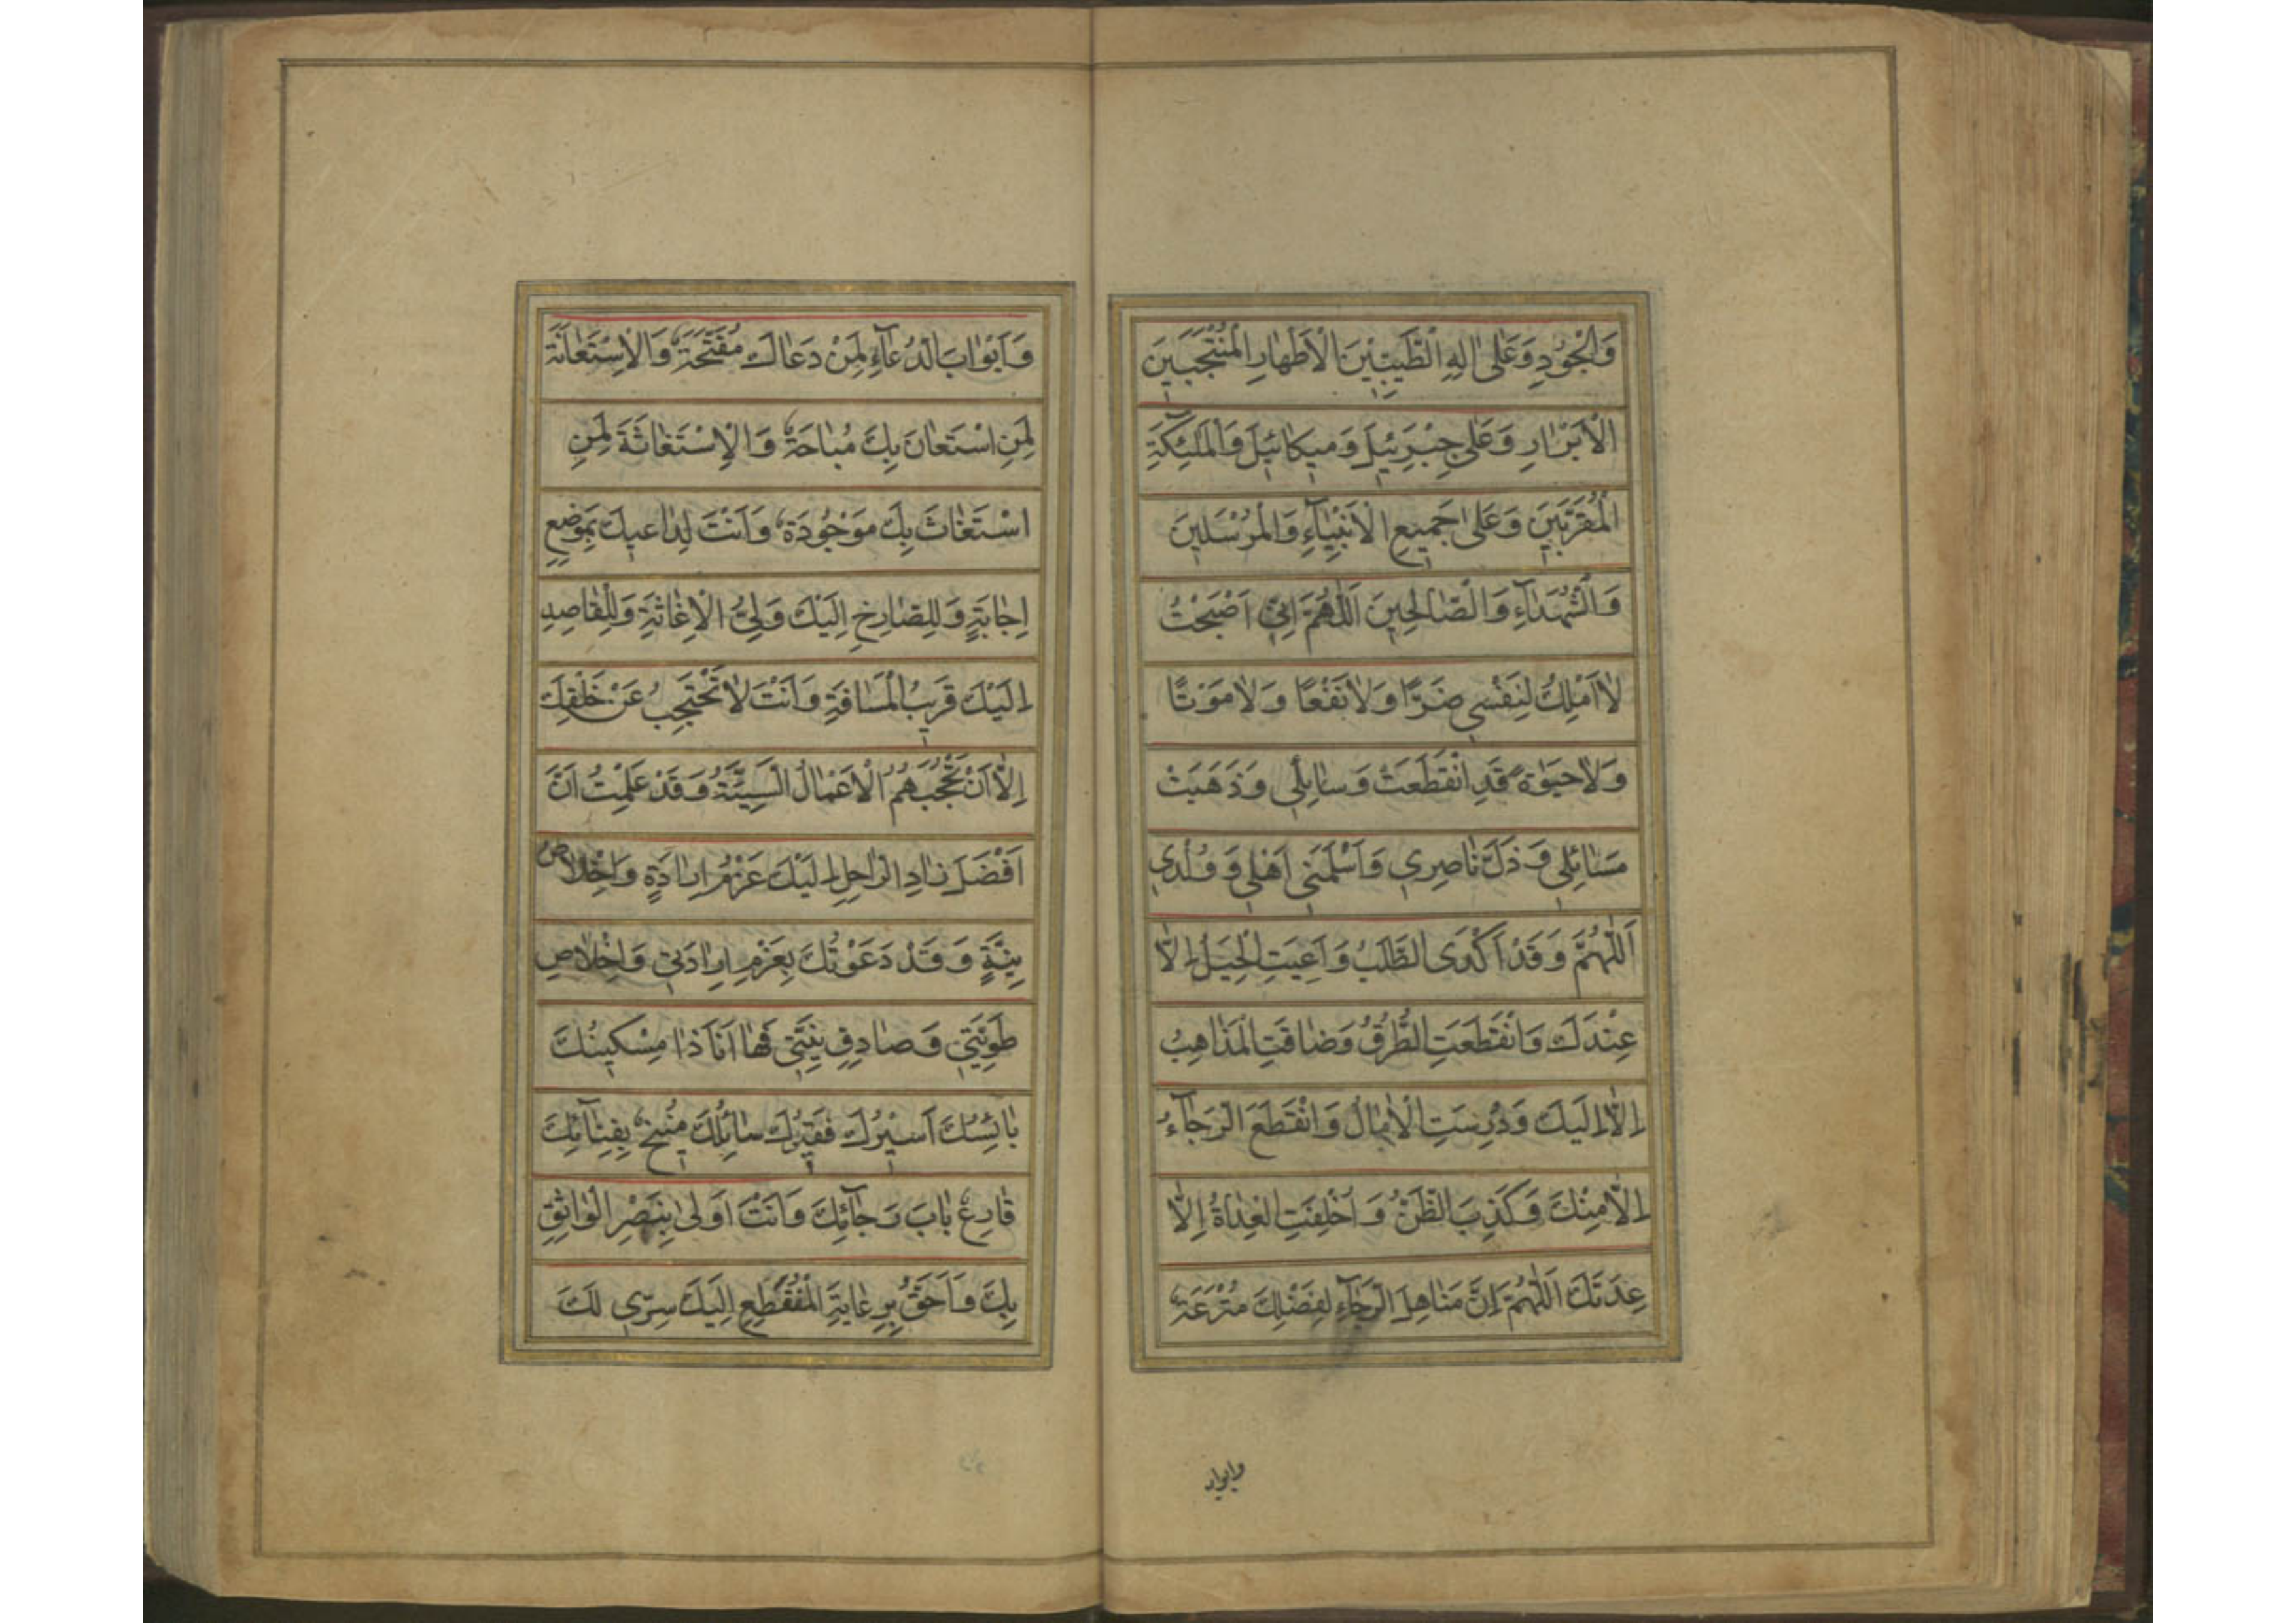 وَالْجُوْدِ وَعَلىٰ اٰلِهِ الطَّيِّبِيْنَ الْاَطْهٰارِ الْمُنْتَجَبَيْنَ
الْاَبْرٰارِ وَعَلىٰ جِبْرَئيلَ وَميكٰائيلَ وَالْمَلٰئِكَةِ
الْمُقَرَّبينَ وَعَلىٰ جَميعِ الْاَنْبِيٰآءِ وَالْمُرْسَلينَ
وَالشُّهَدٰآءِ وَالصّٰالِحينَ اَللّٰهُمَّ اِنّى اَصْبَحْتُ
لٰا اَمْلِكُ لِنَفْسى ضَرًّا وَلٰا نَفْعًا وَلٰا مَوْتًا
وَلٰا حَيٰوةً قَدِ انْقَطَعَتْ وَسٰائِلى وَذَهَبَتْ
مَسٰائِلى وَذَلَّ نٰاصِرى وَاَسْلَمَنى اَهْلى وَوُلْدى
اَللّٰهُمَّ وَقَدْ اَكْدَى الطَّلَبُ وَاَعْيَتِ الْحِيَلُ اِلّٰا
عِنْدَكَ وَانْقَطَعَتِ الطُّرُقُ وَضٰاقَتِ الْمَذٰاهِبُ
اِلّٰا اِلَيْكَ وَدُرِسَتِ الْاٰمٰالُ وَانْقَطَعَ الرَّجٰآءُ
اِلّٰا مِنْكَ وَكَذِبَ الظَّنُّ وَاُخْلِفَتِ الْعِدٰاةُ اِلّٰا
عِدَتَكَ اَللّٰهُمَّ اِنَّ مَنٰاهِلَ الرَّجٰآءِ لِفَضْلِكَ مُتْرَعَةٌ
وابواب
وَاَبْوٰابَ الدُّعٰآءِ لِمَنْ دَعٰاكَ مُفَتَّحَةٌ وَالْاِسْتَعٰانَةَ
لِمَنِ اسْتَعٰانَ بِكَ مُبٰاحَةٌ وَالْاِسْتَغٰاثَةَ لِمَنِ
اسْتَغٰاثَ بِكَ مَوْجُودَةٌ وَاَنْتَ لِدٰاعيكَ بِمَوْضِعِ
اِجٰابَةٍ وَلِلصّٰارِخِ اِلَيْكَ وَلِىُّ الْاِغٰاثَةِ وَلِلْقٰاصِدِ
اِلَيْكَ قَريبُ الْمَسٰافَةِ وَاَنْتَ لٰا تَحْتَجِبُ عَنْ خَلْقِكَ
اِلّٰا اَنْ تَحْجُبَهُمُ الْاَعْمٰالُ السَّيِّئَةُ وَقَدْ عَلِمْتُ اَنَّ
اَفْضَلَ زٰادِ الرّٰاحِلِ اِلَيْكَ عَزْمُ اِرٰادَةٍ وَاِخْلٰاصُ
نِيَّةٍ وَقَدْ دَعَوْتُكَ بِعَزْمِ اِرٰادَتى وَاِخْلٰاصِ
طَوِيَّتى وَصٰادِقِ نِيَّتى فَهٰا اَنَا ذٰا مِسْكينُكَ
بٰائِسُكَ اَسيرُكَ فَقيرُكَ سٰائِلُكَ مُنيخٌ بِفِنٰآئِكَ
قٰارِعٌ بٰابَ رَجٰآئِكَ وَاَنْتَ اَوْلىٰ بِنَصْرِ الْوٰاثِقِ
بِكَ وَاَحَقُّ بِرِعٰايَةِ الْمُنْقَطِعِ اِلَيْكَ سِرّى لَكَ